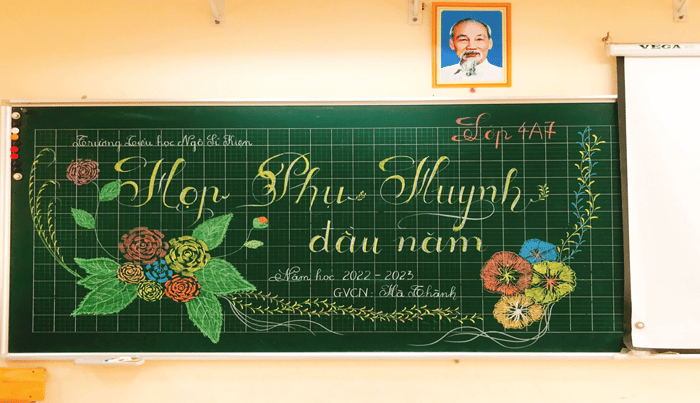 VEGA
Trường tiểu học Ngô Sĩ Kiện
Lớp 4A7
Họp Phụ Huynh
đầu năm
Năm học 2022 - 2023
GVCN: Hà Thành